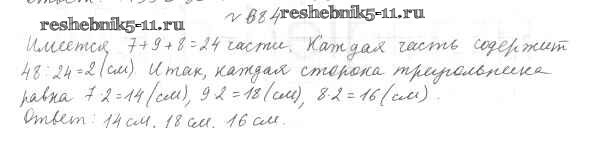 № 884
reshebnik5-11.ru
reshebnik5-11.ru
Имеется 7+9+8=24 части. Каждая часть содержит
48:24=2 (см). Итак, каждая сторона треугольника
равна 7·2=14 (см), 9·2=18 (см), 8·2=16 (см).
Ответ: 14 см, 18 см, 16 см.